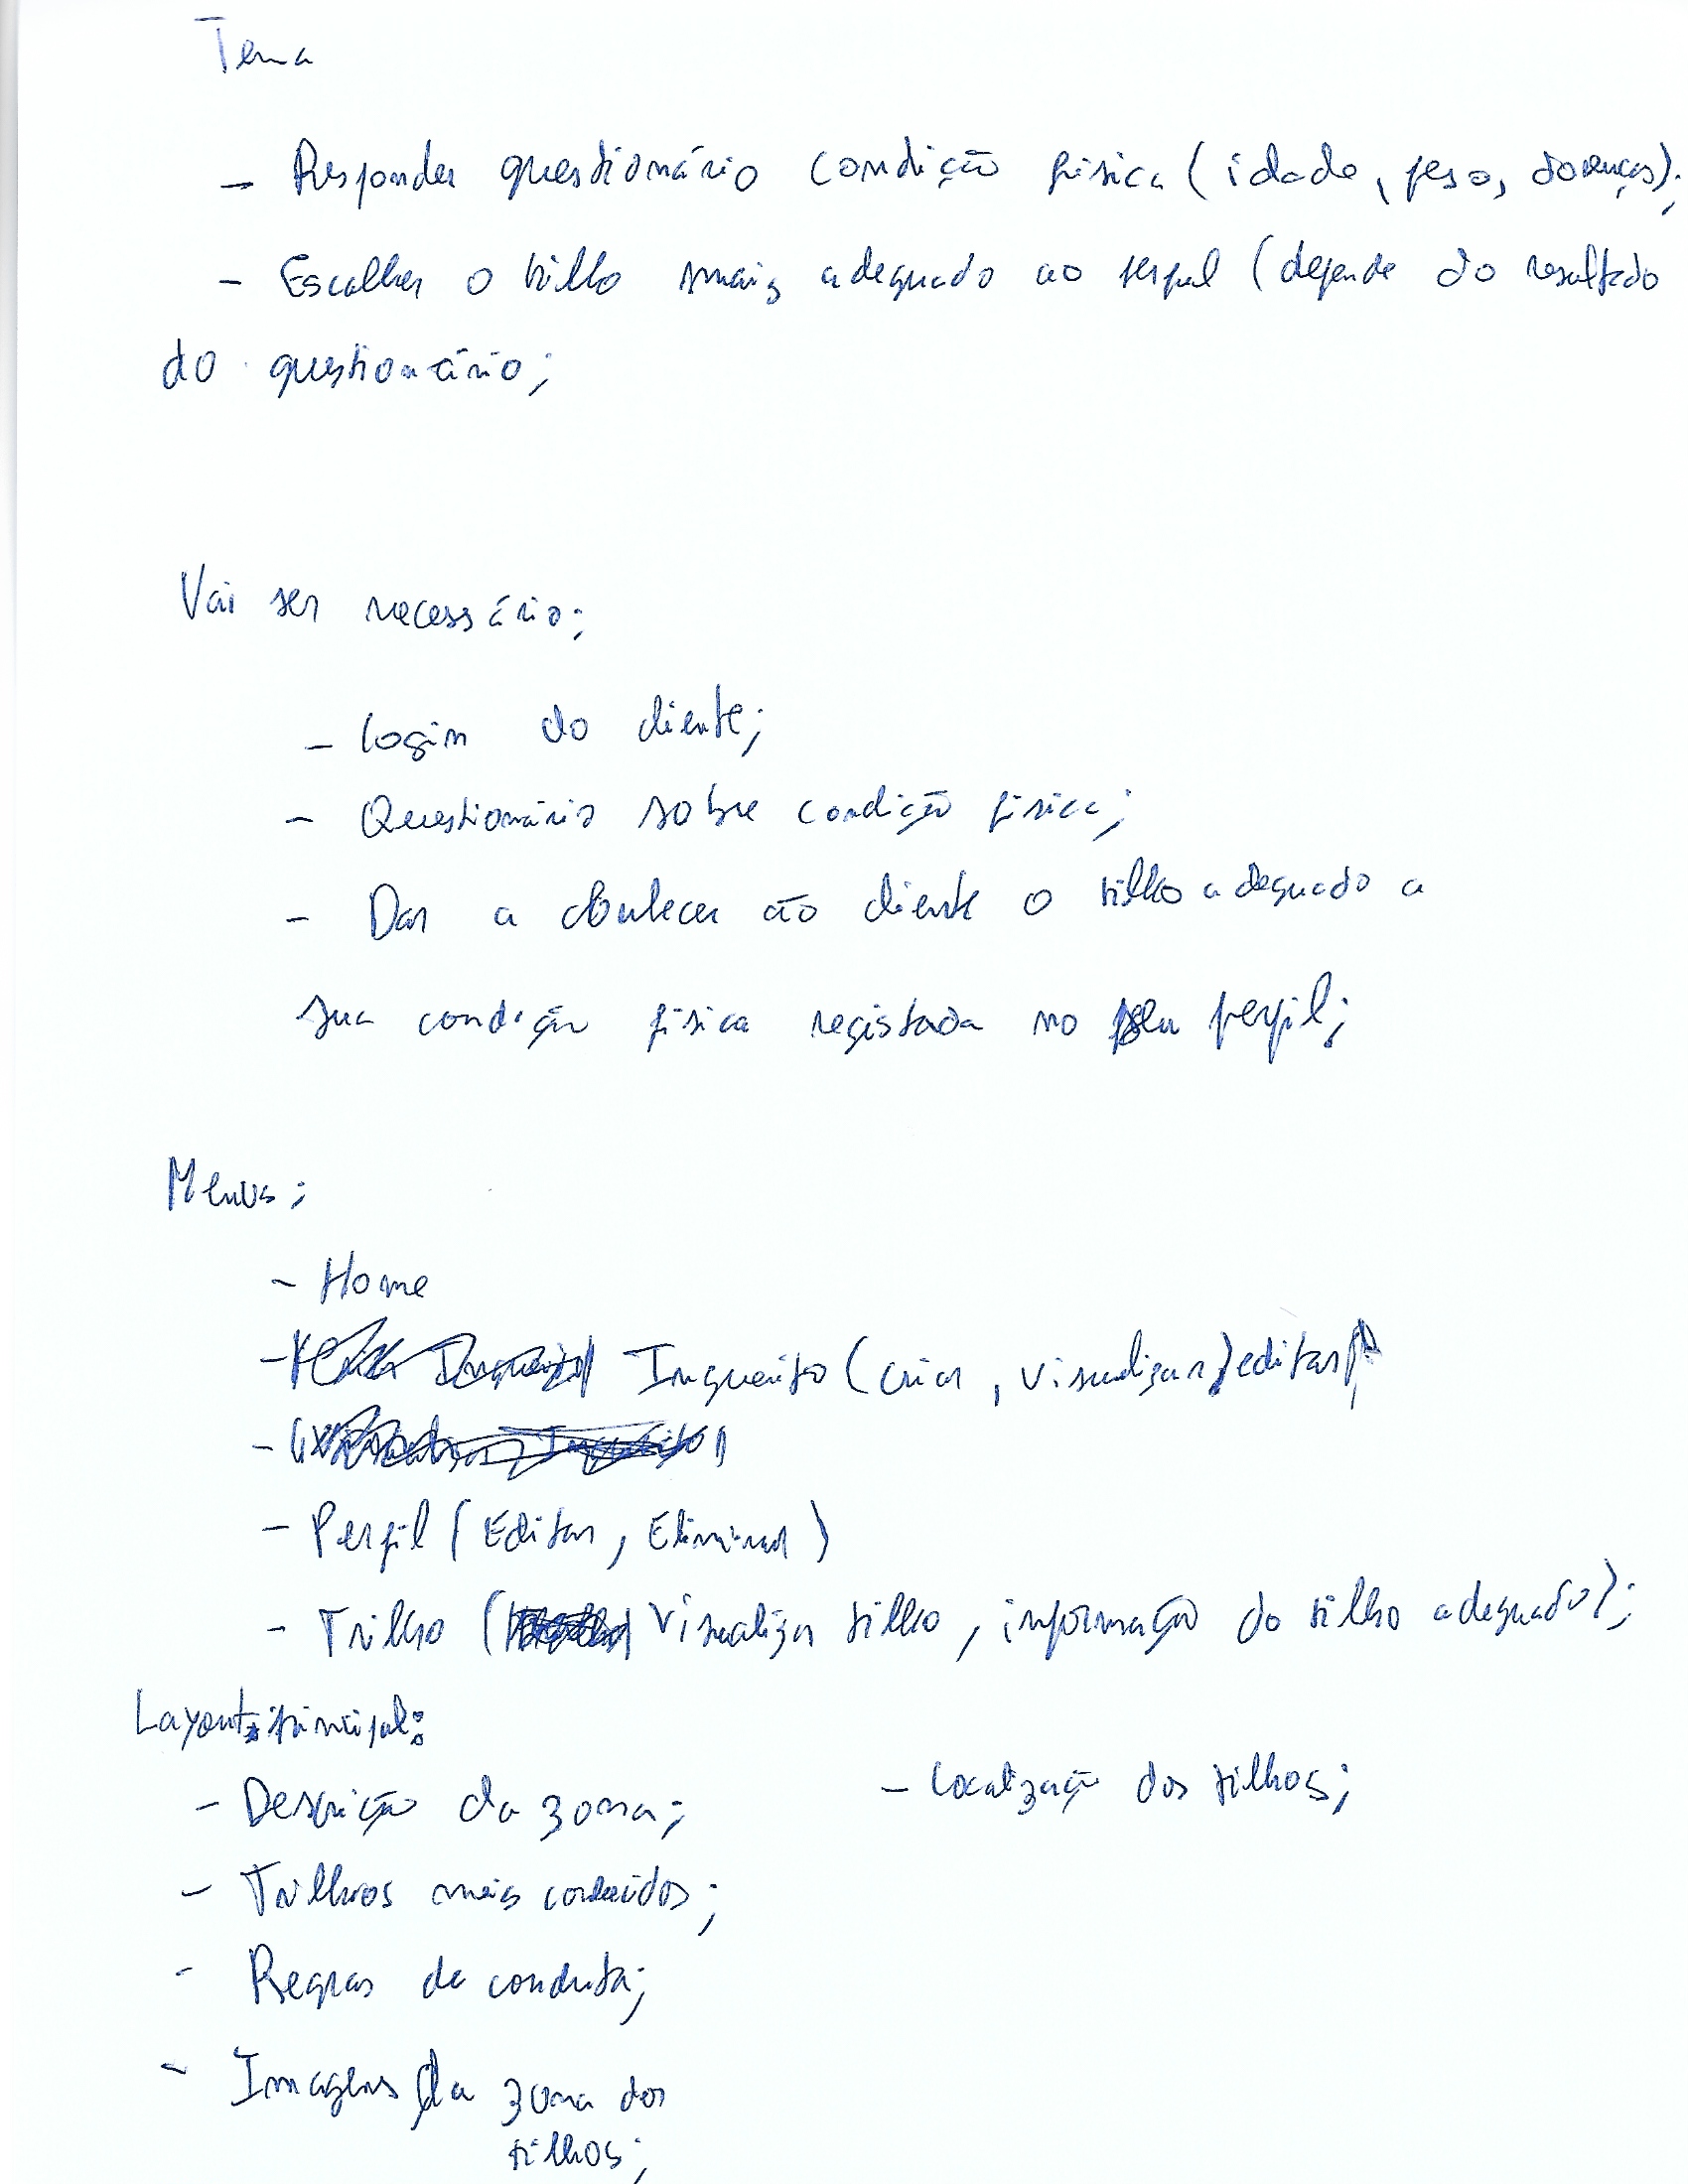 Tema
- Responder questionário condição física (idade, peso, doenças);
- Escolher o trilho mais adequado ao perfil (depende do resultado
do questionário;
Vai ser necessário:
- Login do cliente;
- Questionário sobre condição física;
- Dar a conhecer ao cliente o trilho adequado a
sua condição física registada no seu perfil;
Menus:
- Home
- Inquérito (criar, visualizar, editar)
-
- Perfil (Editar, Eliminar)
- Trilho (Visualizar trilho, informação do trilho adequado);
Layout principal:
- Descrição da zona;
- Localização dos trilhos;
- Trilhos mais conhecidos;
- Regras de conduta;
- Imagens da zona dos
trilhos;